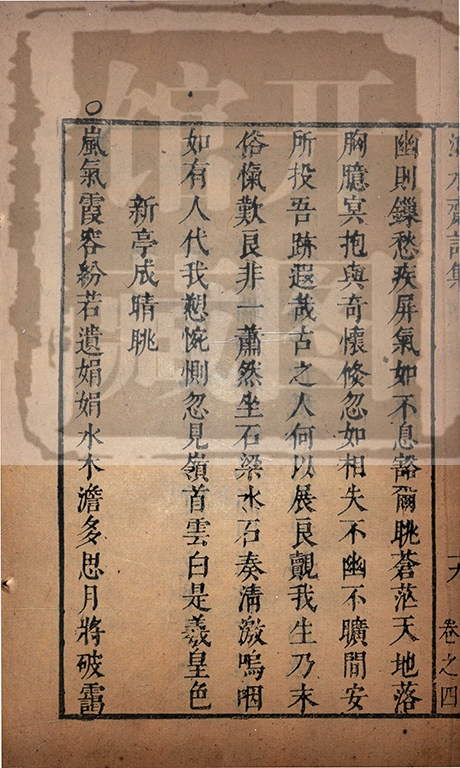 幽則鏁愁疾屏氣如不息豁爾眺蒼茫天地落
胸臆寞抱與奇懷倏忽如相失不幽不曠間安
所投吾跡遐哉古之人何以展良覿我生乃末
俗愾歎良非一蕭然坐石梁水石奏清激嗚咽
如有人代我懇惋惻忽見嶺首雲白是羲皇色
新亭成晴眺
○嵐氣霞容紛若遺娟娟水木澹多思月將破靄
卷之四
開圖
館藏